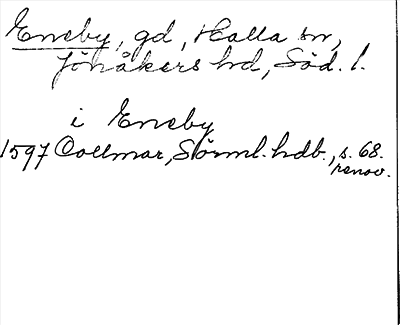 Eneby, gd, Halla sn,
Jönåkers hd, Söd. l.
i Eneby
1597 Collmar, Sörml. hdb., s. 68.
renov.